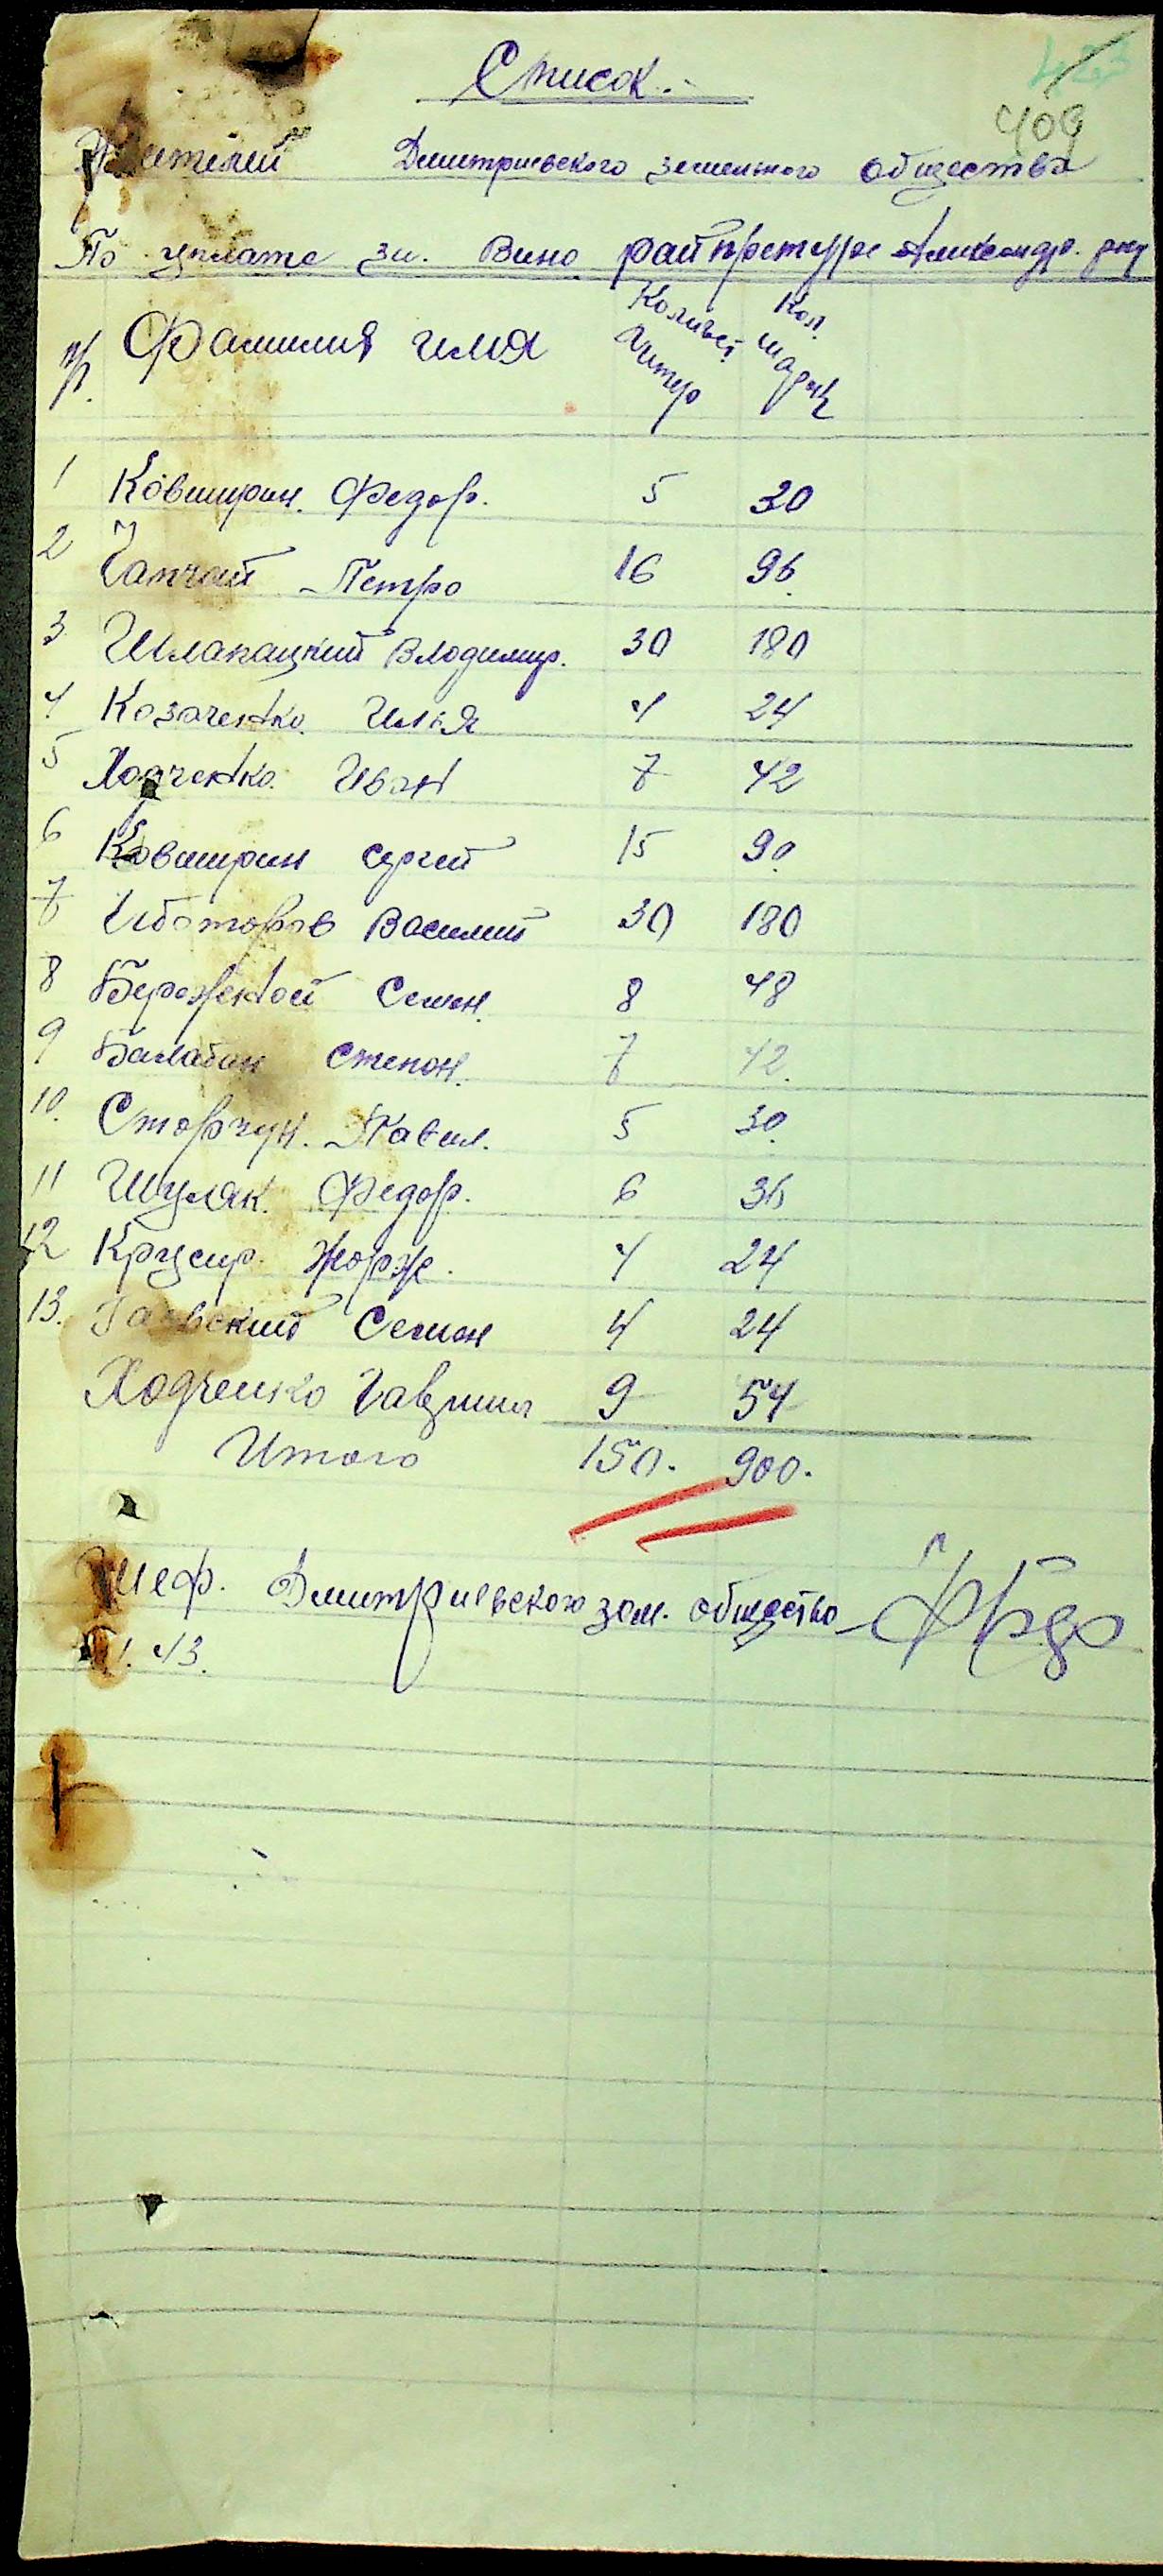 Список.
423
409
Жителей Дмитриевского земельного общества
По уплате за. Вино райпретуре Александр. рну
п/р. Фамилия имя Количест. литер Кол. марок
1 Ковширин. Федор. 5 30
2 Чапчай Петро 16 96.
3 Шлапацкий Владимир. 30 180
4 Козаченко. Илья 4 24
5 Ходченко. Иван 7 42
6 Ковширин Сергей 15 90
7 Василий 30 180
8 Бережной Семен. 8 48
9 Балабан Степан. 7 42.
10. Сторчун. Павел. 5 30.
11 Шуляк. Федор. 6 36
12 Круцир. Жорж. 4 24
13. Гаевский Семен 4 24
Ходченко Гаврил 9 54
Итого 150. 900.
Шеф. Дмитриевского зем. общество
1. 43.